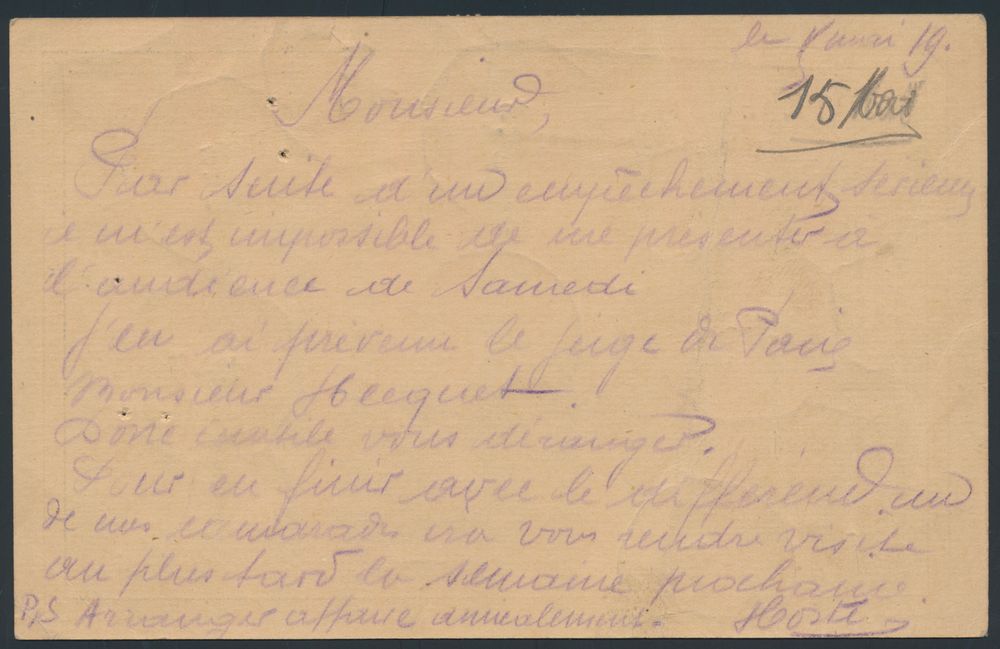 le 8 mai 19.
15 Mai
Monsieur,
Par suite d'un empêchement sérieux
il m'est impossible de me présenter à
l'audience de Samedi
j'en ai prévenu le juge de Paix
Monsieur Hecquet.
Donc inutile vous déranger.
Pour en finir avec le différend un
de nos camarades ira vous rendre visite
au plus tard la semaine prochaine.
P,S Arranger affaire amicalement. Hoste